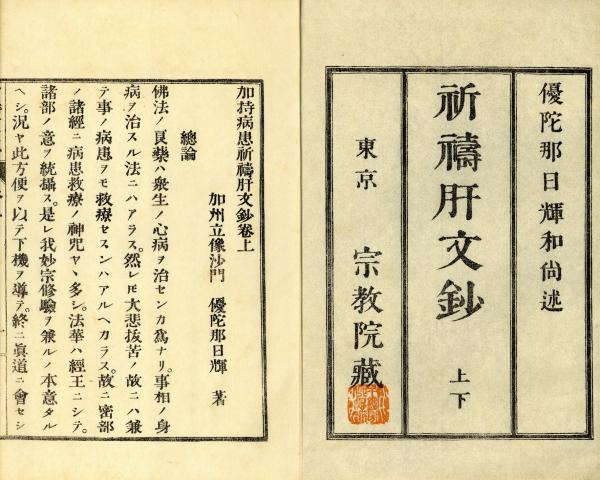 優陀那日輝和尚述
祈禱肝文鈔 上下
東京 宗教院藏
加持病患祈禱肝文鈔卷上
加州立像沙門 優陀那日輝 著
總論
佛法ノ良藥ハ衆生ノ心病ヲ治センカ爲ナリ。事相ノ身
病ヲ治スル法ニハアラス。然レ𪜈大悲拔苦ノ故ニハ兼
テ事ノ病患ヲモ救療セスンハアルヘカラス。故ニ密部
ノ諸經ニ病患救療ノ神咒ヤヽ多シ。法華ハ經王ニシテ。
諸部ノ意ヲ統攝ス。是レ我妙宗修驗ヲ兼ルノ本意タル
ヘシ。況ヤ此方便ヲ以テ下機ヲ導テ。終ニ眞道ニ會セシ